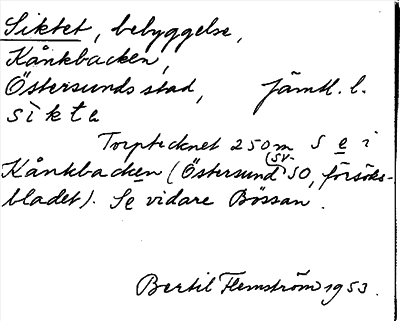 Siktet, bebyggelse,
Kånkbacken,
Östersunds stad, Jämtl. l.
sìkte
Torptecknet 250 m S e i
Kånkbacken (Östersund SV-SO, försöks-
bladet). Se vidare Bössan.
Bertil Flemström 1953.